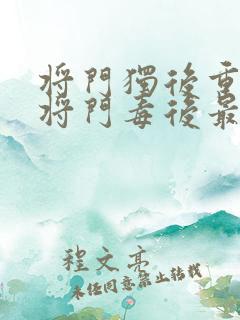 将門獨後重
将門毒後最
程文亮
未经同意禁止转载